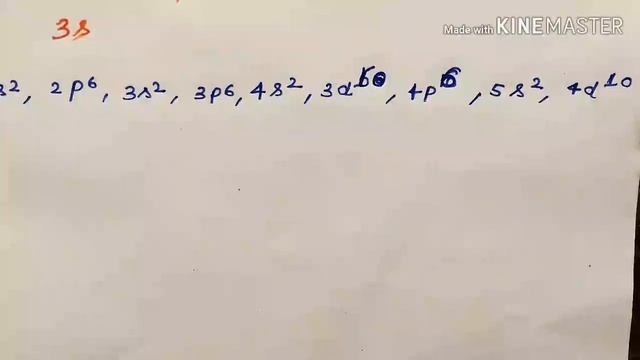 Made with KINEMASTER
3s
s², 2p⁶, 3s², 3p⁶, 4s², 3d¹⁰, 4p⁶, 5s², 4d¹⁰